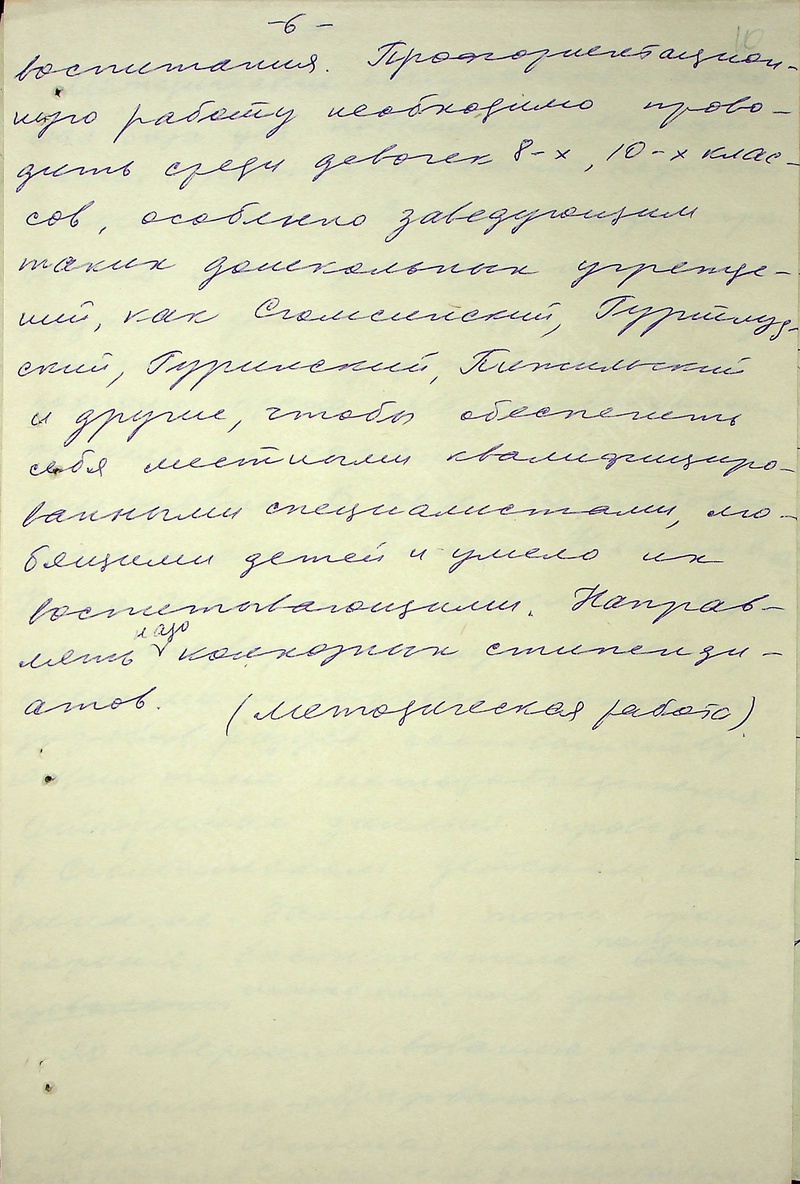 -6-
10
воспитания. Профориентацион-
ную работу необходимо прово-
дить среди девочек 8-х, 10-х клас-
сов, особенно заведующим
таких дошкольных учрежде-
ний, как Сюмсинский, Гуртлуд-
ский, Гуринский, Пижильский
и другие, чтобы обеспечить
себя местными квалифициро-
ванными специалистами, лю-
бящими детей и умело их
воспитывающими. Направ-
лять надо колхозных стипенди-
атов. (методическая работа)